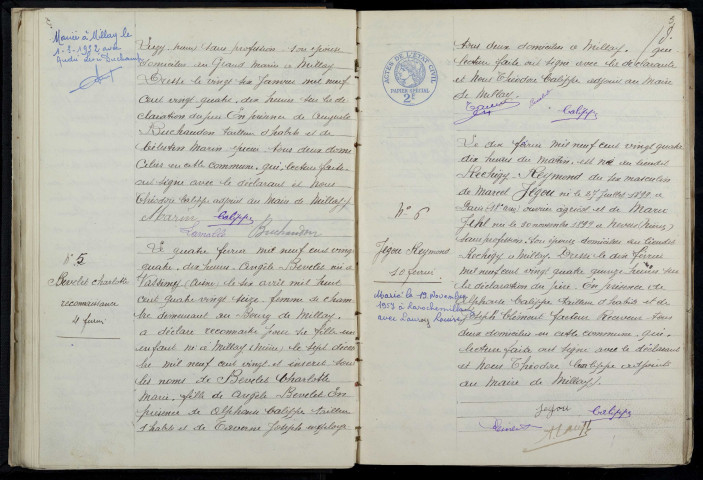 Mariée à Millay le
1-9-1952 avec
Duchamp
sans profession son épouse
domiciliés au Grand Marié à Millay
Dressé le vingt six Janvier mil neuf
cent vingt quatre dix heures sur la dé
claration du père En présence de Auguste
Buchaudon tailleur d'habits et de
Célestin Marin tous deux domi
ciliés en cette commune, qui, lecture faite
ont signé avec le déclarant et Nous
Théodore Calippe adjoint au Maire de Millay
Marin Calippe
Buchaudon
N° 5
Bevelet Charlotte
reconnaissance
4 février
Le quatre février mil neuf cent vingt
quatre, dix heures Angèle Bevelet née à
le six avril mil huit
cent quatre vingt seize, femme de cham
bre demeurant au Bourg de Millay
a déclaré reconnaître pour sa fille un
enfant né à Millay (Nièvre) le sept décem
bre mil neuf cent vingt et inscrit sous
les noms de Bevelet Charlotte
Marie, fille de Angèle Bevelet En
présence de Alphonse Calippe tailleur
d'habits et de Joseph employé
ACTES DE L'ETAT CIVIL
PAPIER SPECIAL
2F
tous deux domiciliés à Millay, qui
lecture faite ont signé avec la déclarante
et Nous Théodore Calippe adjoint au Maire
de Millay.
Calippe
N° 6
Jegou Reymond
10 février
Marié le 19 Novembre
1957 à Larochemillay
avec
Le dix février mil neuf cent vingt quatre
dix heures du matin, est né au lieudit
Rechigy Reymond du sexe masculin
de Marcel Jegou né le 27 Juillet
Paris ouvrier agricole et de Marie
née le 10 novembre à Nevers (Nièvre)
sans profession son épouse domiciliés au lieudit
Rechigy à Millay Dressé le dix février
mil neuf cent vingt quatre quinze heures sur
la déclaration du père. En présence de
Alphonse Calippe tailleur d'habits et de
Joseph Clément facteur Receveur tous
deux domiciliés en cette commune, qui,
lecture faite ont signé avec le déclarant
et Nous Théodore Calippe adjoint
au Maire de Millay.
Jegou Calippe